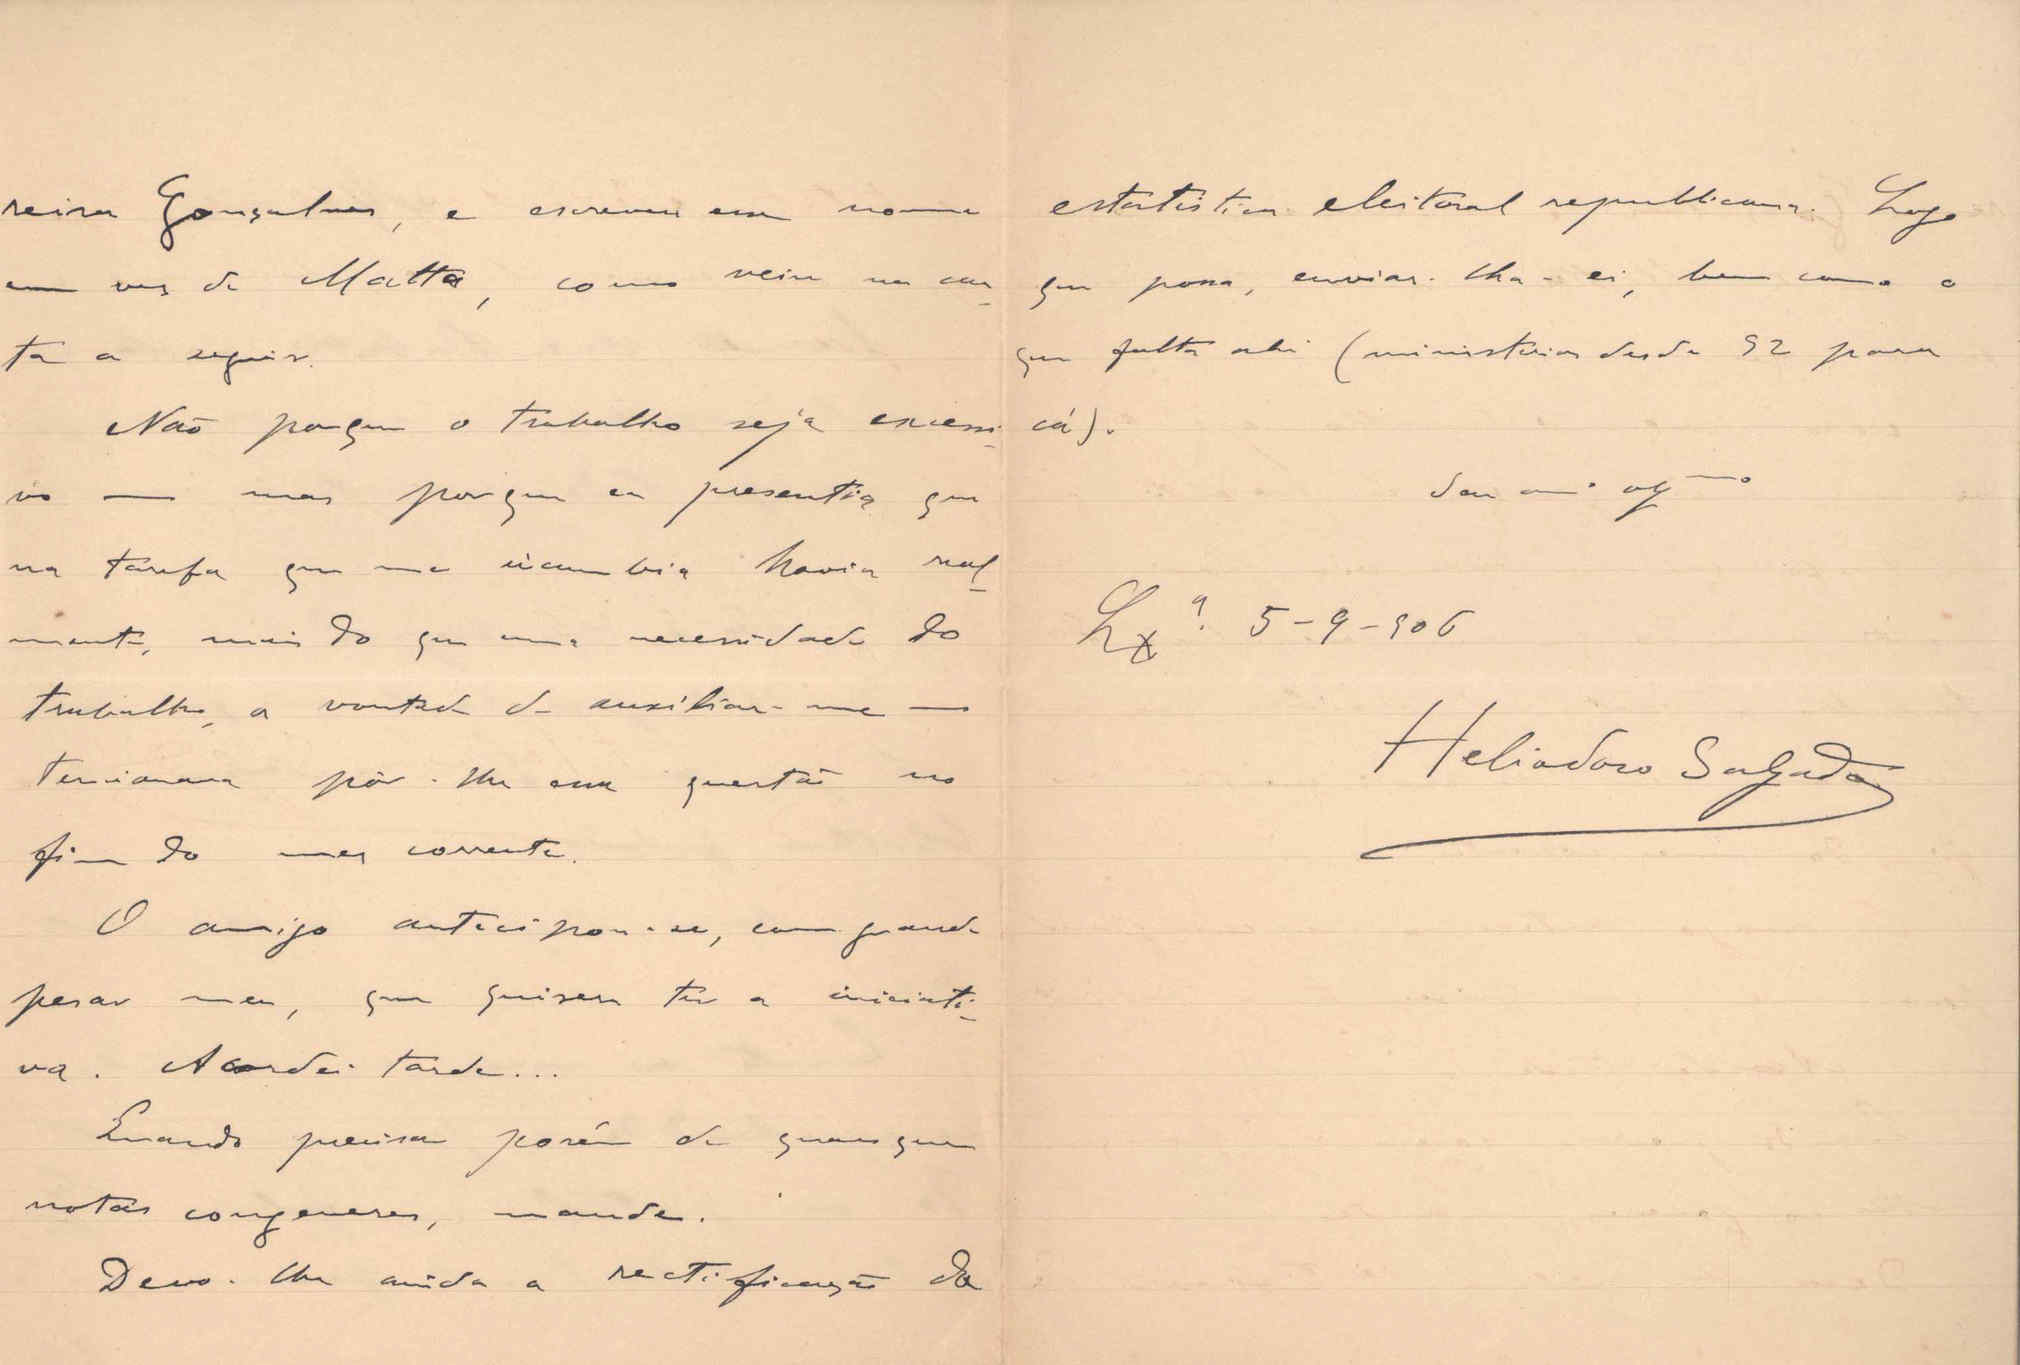 reira Gonçalves, e escreveu esse nome
em vez de Matta, como veiu na car-
ta a seguir.
Não porque o trabalho seja excessi-
vo — mas porque eu presentia que
na tarefa que me incumbia havia real-
mente, mais do que uma necessidade do
trabalho, a vontade de auxiliar-me —
tencionava pôr-lhe essa questão no
fim do mez corrente.
O amigo antecipou-se, com grande
pesar meu, que quizera ter a iniciati-
va. Acordei tarde...
Quando precisar porém de quaesquer
notas congeneres, mande.
Devo-lhe ainda a rectificação da
estatistica eleitoral republicana. Logo
que possa, enviar-lha-ei, bem como o
que falta ahi (ministerios desde 92 para
cá).
Seu am.º obg.mo
Lx.ª 5-9-906
Heliodoro Salgado